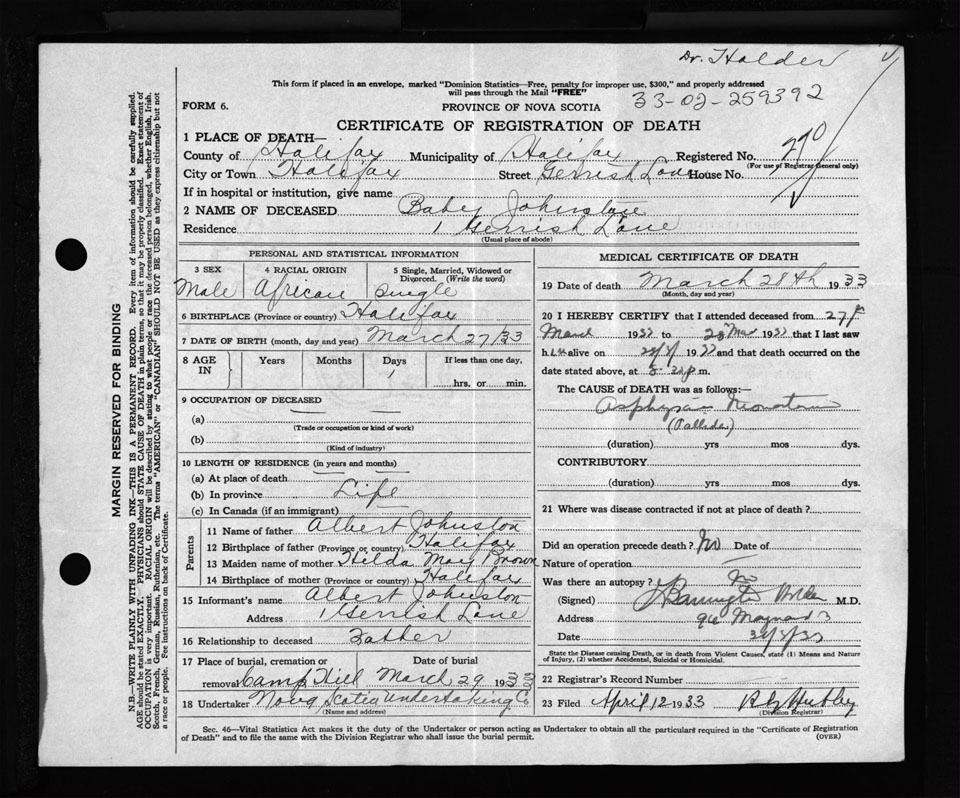 Dr. Holder
This form if placed in an envelope, marked "Dominion Statistics—Free, penalty for improper use, $300," and properly addressed
will pass through the Mail "FREE"
33-02-259392
FORM 6.
PROVINCE OF NOVA SCOTIA
CERTIFICATE OF REGISTRATION OF DEATH
1 PLACE OF DEATH—
County of Halifax Municipality of Halifax Registered No. 270
(For use of Registrar General only)
City or Town Halifax Street Gerrish Lane House No. 1
If in hospital or institution, give name
2 NAME OF DECEASED Baby Johnston
Residence 1 Gerrish Lane
(Usual place of abode)
PERSONAL AND STATISTICAL INFORMATION
3 SEX 4 RACIAL ORIGIN 5 Single, Married, Widowed or
Divorced. (Write the word)
Male African Single
6 BIRTHPLACE (Province or country) Halifax
7 DATE OF BIRTH (month, day and year) March 27/33
8 AGE IN Years Months Days If less than one day,
1
hrs. or min.
9 OCCUPATION OF DECEASED
(a)
(Trade or occupation or kind of work)
(b)
(Kind of industry)
10 LENGTH OF RESIDENCE (in years and months)
(a) At place of death
(b) In province Life
(c) In Canada (if an immigrant)
Parents
11 Name of father Albert Johnston
12 Birthplace of father (Province or country) Halifax
13 Maiden name of mother Hilda May Brown
14 Birthplace of mother (Province or country) Halifax
15 Informant's name Albert Johnston
Address 1 Gerrish Lane
16 Relationship to deceased Father
17 Place of burial, cremation or Date of burial
removal Camp Hill March 29 1933
18 Undertaker Nova Scotia Undertaking Co
(Name and address)
MEDICAL CERTIFICATE OF DEATH
19 Date of death March 28th 1933
(Month, day and year)
20 I HEREBY CERTIFY that I attended deceased from 27th
March 1933 to 28 Mar 1933 that I last saw
h alive on 28/3/ 1933 and that death occurred on
date stated above, at p.m.
The CAUSE OF DEATH was as follows:—
Asphyxia Neonatorum
(Pallida)
(duration) yrs mos dys.
CONTRIBUTORY
(duration) yrs mos dys.
21 Where was disease contracted if not at place of death?
Did an operation precede death? No Date of
Nature of operation
Was there an autopsy? No
(Signed) M.D.
Address 96 Maynard
Date
State the Disease causing Death, or in death from Violent Causes, state (1) Means and Nature
of Injury, (2) whether Accidental, Suicidal or Homicidal.
22 Registrar's Record Number
23 Filed April 12 1933
(Division Registrar)
Sec. 46—Vital Statistics Act makes it the duty of the Undertaker or person acting as Undertaker to obtain all the particulars required in the "Certificate of Registration
of Death" and to file the same with the Division Registrar who shall issue the burial permit. (OVER)
MARGIN RESERVED FOR BINDING
N.B.—WRITE PLAINLY WITH UNFADING INK—THIS IS A PERMANENT RECORD. Every item of information should be carefully supplied.
AGE should be stated EXACTLY. PHYSICIANS should STATE CAUSE OF DEATH in plain terms, so that it may be properly classified. Exact statement of
OCCUPATION is very important. RACIAL ORIGIN will be described by stating to what people or race the deceased person belonged, whether English, Irish,
Scotch, French, German, Russian, Ruthenian, etc. The terms "AMERICAN" or "CANADIAN" SHOULD NOT BE USED as they express citizenship but not
a race or people. See instructions on back of Certificate.